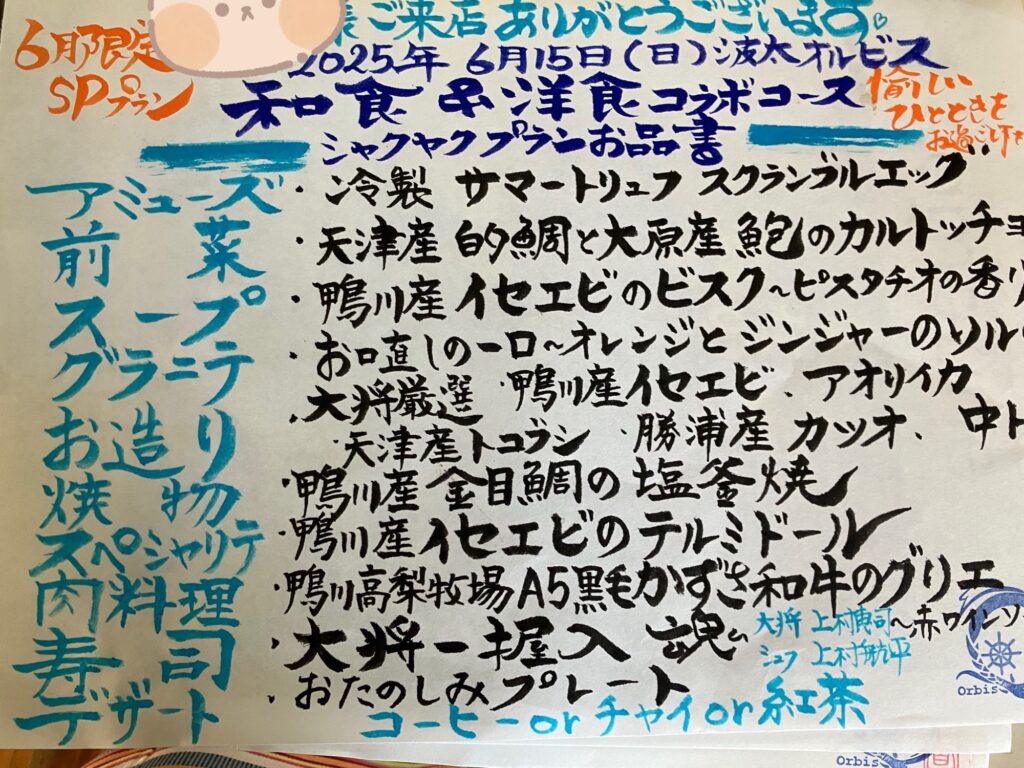 様ご来店ありがとうございます。
6月限定
SPプラン
2025年 6月15日(日)波太オルビス
和食&洋食コラボコース
愉しい
ひとときを
お過ごし下
シャクヤクプランお品書
アミューズ ・冷製 サマートリュフ スクランブルエッグ
前菜 ・天津産 的鯛と大原産 鮑のカルトッチョ
スープ ・鴨川産イセエビのビスク~ピスタチオの香り
グラニテ ・お口直しの一口~オレンジとジンジャーのソル
お造り ・大将厳選 鴨川産イセエビ、アオリイカ
天津産トコブシ ・勝浦産 カツオ、中ト
焼物 ・鴨川産 金目鯛の塩釜焼
スペシャリテ ・鴨川産 イセエビのテルミドール
肉料理 ・鴨川高梨牧場A5黒毛かずさ和牛のグリエ
~赤ワインソ
寿司 ・大将一握入魂
大将 上村
シェフ 上村
デザート ・おたのしみプレート
コーヒーorチャイor紅茶
Orbis
Orbis